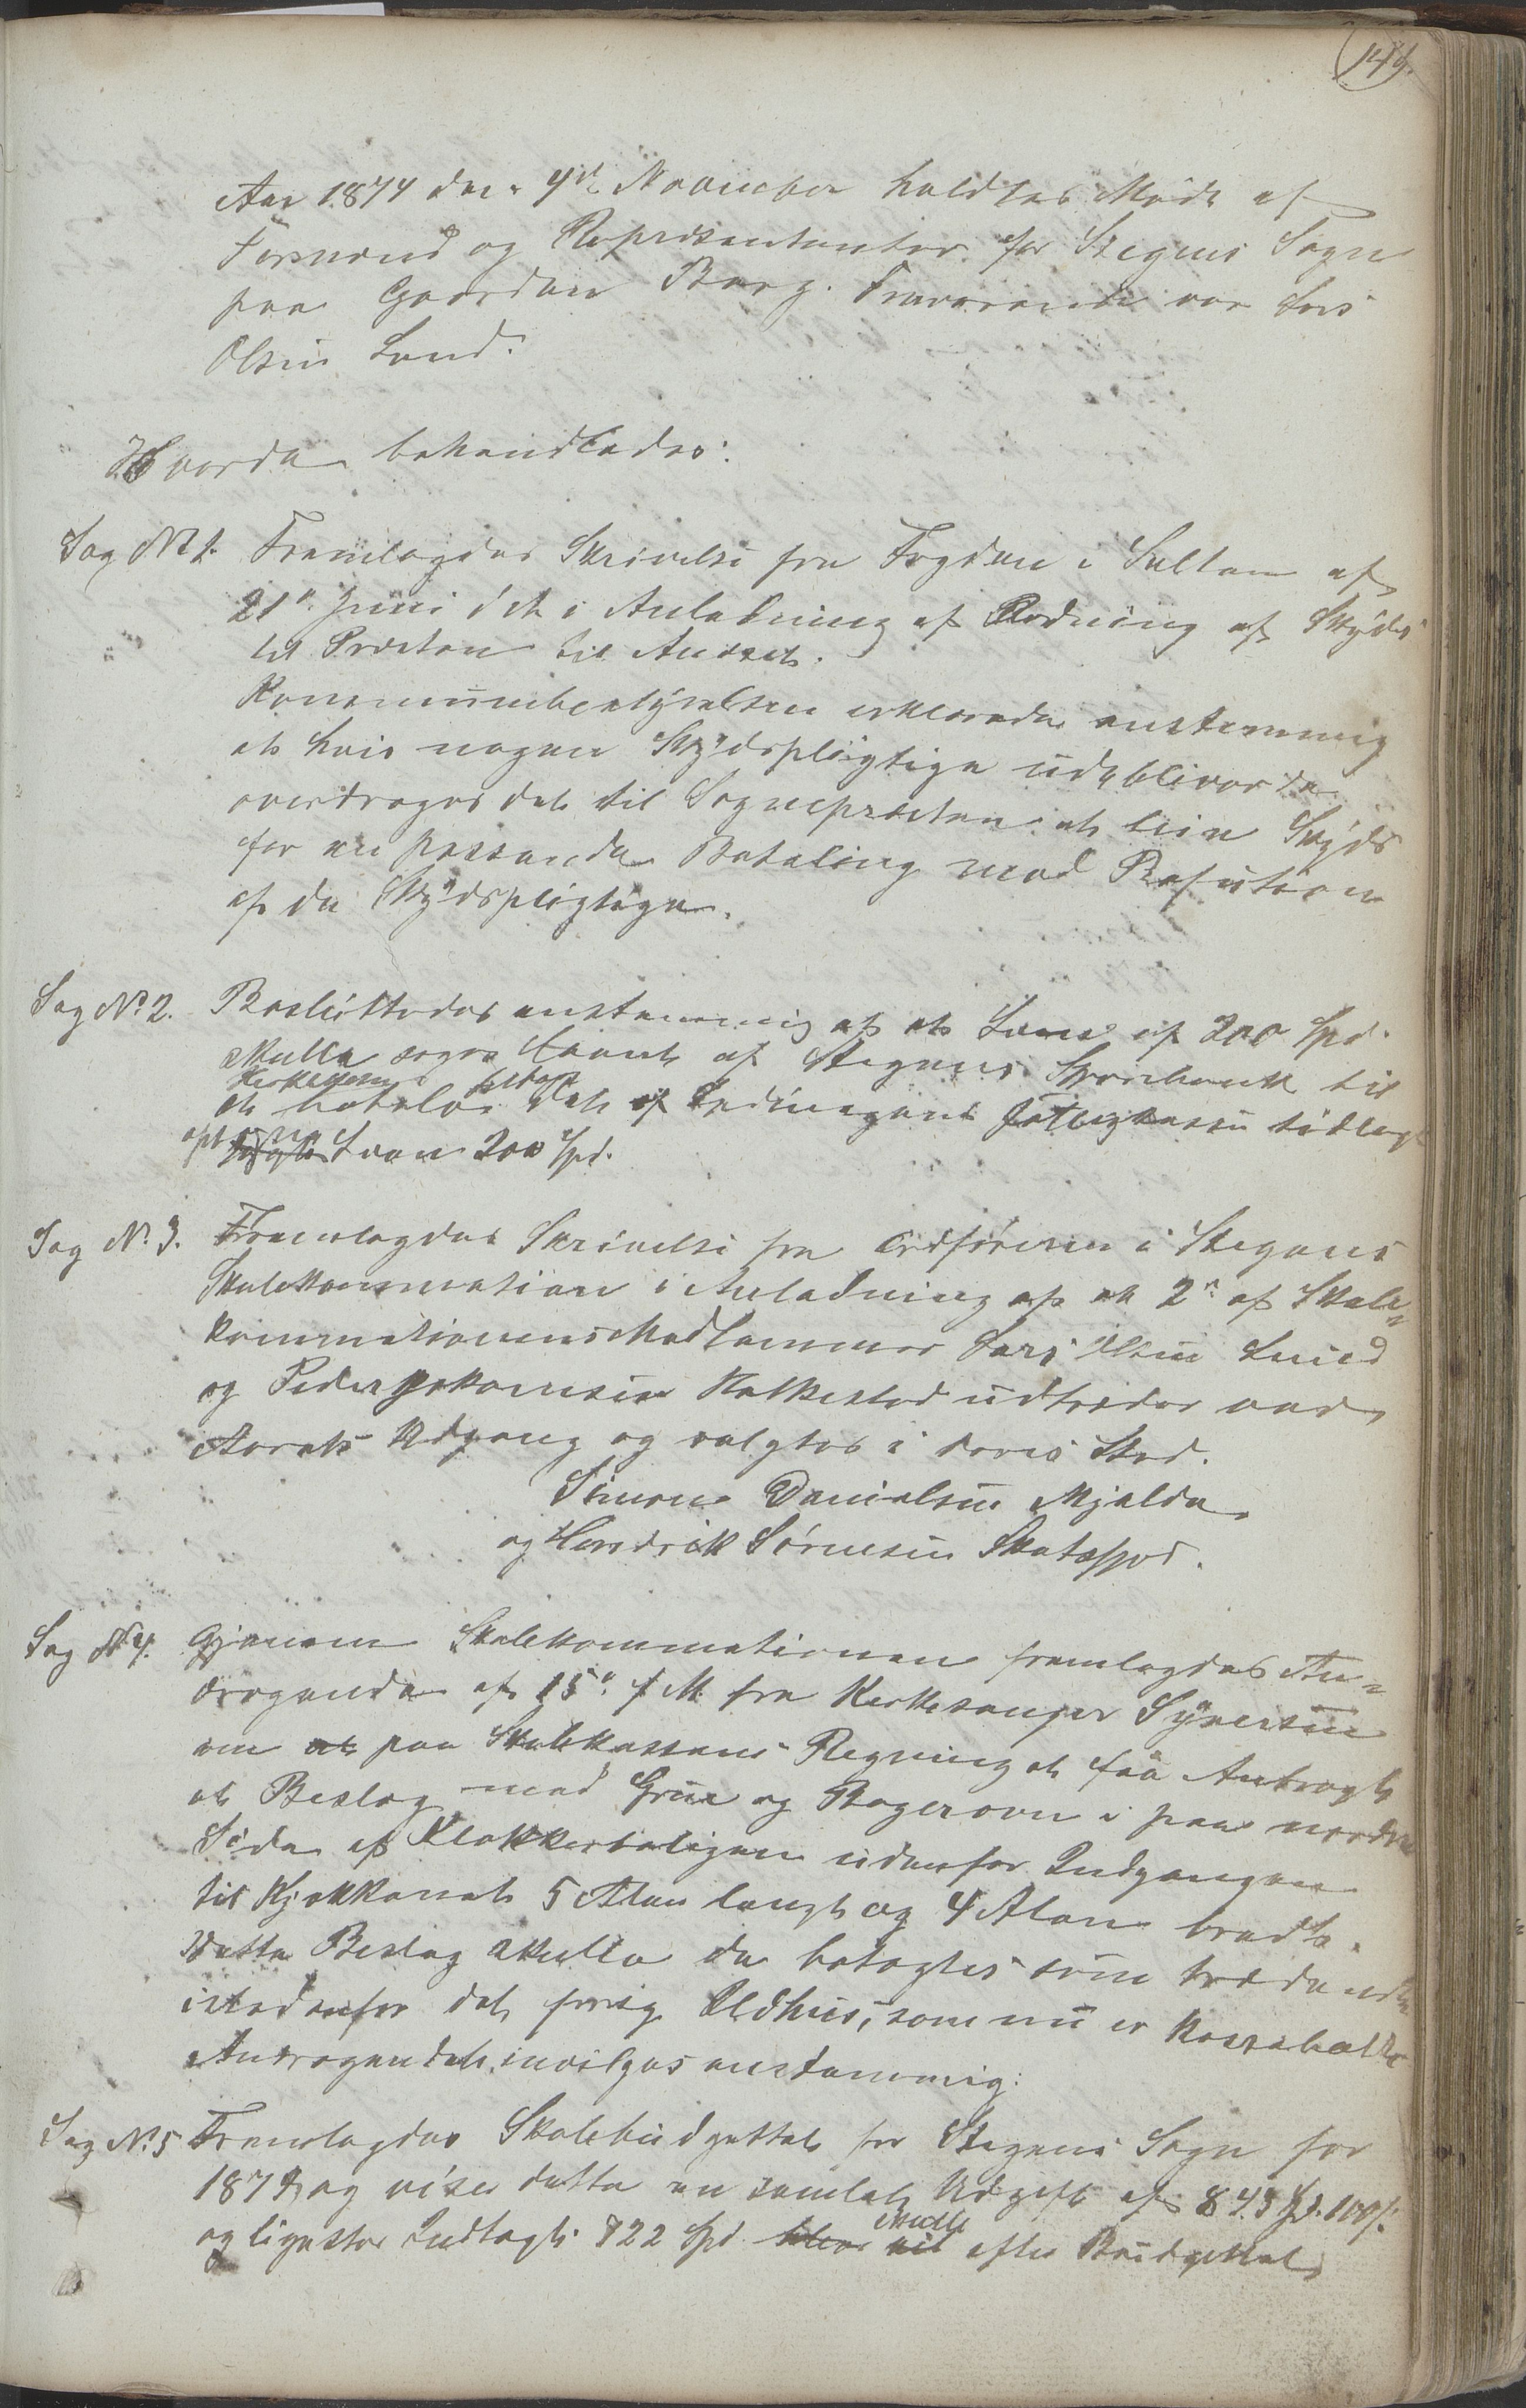 149.
Aar 1874 den 4de November holdtes Møde af
Formænd og Repræsentanter for Stegens Sogn
paa Gaarden Borg. Fraværende var Lars
Olsen Lund.
Hvorda behandledes:
Sag No 1. Fremlagdes Skrivelse fra Fogden i Salten af
21de Juni d A i Anledning af Ordning af Skyds
til Præsten til Annex.
Kommunebestyrelsen erklærede enstemmig
at hvis nogen Skydspligtige udebliver da
overdrages det til Sognepræsten at leie Skyds
for en passende Betaling mod Refusion
af de Skydspligtige.
Sag No 2. Besluttedes enstemmig at et Laan af 200 Spd.
skulle søges laant af Stegens Sparebank til
Kirkekassen tilbage
at betale det af Ledingens Fattigkasse tidligere
Laan 200 Spd.
Sag No. 3. Fremlagdes Skrivelse fra Ordføreren i Stegens
Skolekommission i Anledning af at 2de af Skole-
kommissionens Medlemmer Lars Olsen Lund
og Peder Johannesen Holkestad udtræder ved
Aarets Udgang og valgtes i deres Sted.
Simon Danielsen Mjelde
og Hendrik Sørensen Skotsfjord.
Sag No 4. Gjennem Skolekommissionen fremlagdes An-
dragende af 15de f M. fra Kirkesanger Sÿversen
om at paa Skolekassens Regning at faa Anbragt
et Beslag med Grue og Bagerovn i paa nordre
Side af Klokkerboligen udenfor Indgangen
til Kjøkkenet 5 Alen langt og 4 Alen bredt.
Dette Beslag skulle da betragtes som trædende
istedenfor det forrige Ildhus, som nu er kassabelt
Andragendet indvilges enstemmig.
Sag No 5 Fremlagdes Skolebudgettet for Stegens Sogn for
187 og viser dette en samlet Udgift af 843 Spd. 100 s.
skulle
og lignettes Indtægt 722 Spd. blev til efter Budgettet